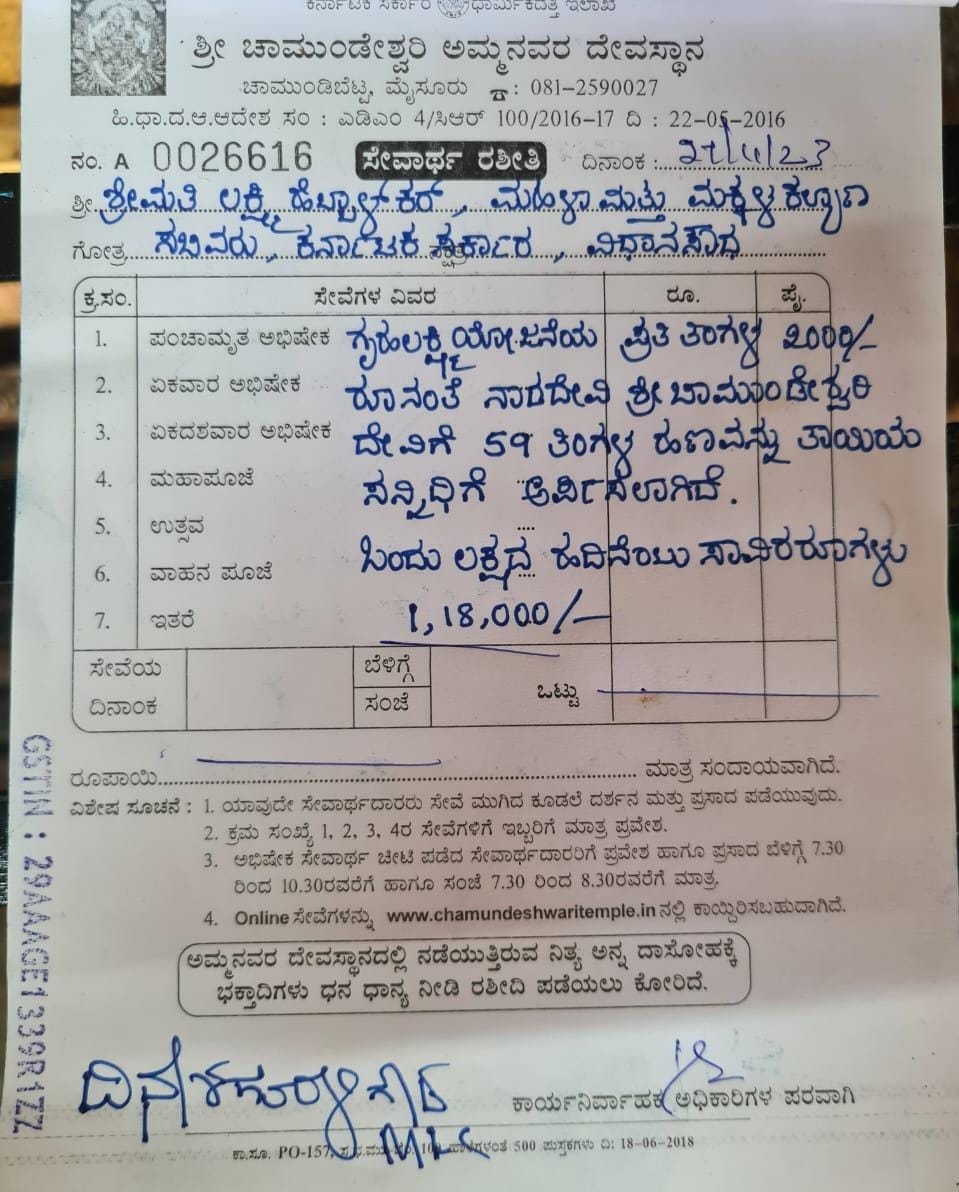 ಕರ್ನಾಟಕ ಸರ್ಕಾರ ಧಾರ್ಮಿಕದತ್ತಿ ಇಲಾಖೆ
ಶ್ರೀ ಚಾಮುಂಡೇಶ್ವರಿ ಅಮ್ಮನವರ ದೇವಸ್ಥಾನ
ಚಾಮುಂಡಿಬೆಟ್ಟ, ಮೈಸೂರು ☎: 081-2590027
ಹಿ.ಧಾ.ದ.ಆ.ಆದೇಶ ಸಂ : ಎಡಿಎಂ 4/ಸಿಆರ್ 100/2016-17 ದಿ : 22-05-2016
ನಂ. A 0026616 ಸೇವಾರ್ಥ ರಶೀತಿ ದಿನಾಂಕ : 27/11/23
ಶ್ರೀ. ಶ್ರೀಮತಿ ಲಕ್ಷ್ಮಿ ಹೆಬ್ಬಾಳ್ಕರ್, ಮಹಿಳಾ ಮತ್ತು ಮಕ್ಕಳ ಕಲ್ಯಾಣ
ಗೋತ್ರ ಸಚಿವರು, ಕರ್ನಾಟಕ ಸರ್ಕಾರ, ವಿಧಾನಸೌಧ
ಕ್ರ.ಸಂ. ಸೇವೆಗಳ ವಿವರ ರೂ. ಪೈ.
1. ಪಂಚಾಮೃತ ಅಭಿಷೇಕ ಗೃಹಲಕ್ಷ್ಮಿ ಯೋಜನೆಯ ಪ್ರತಿ ತಿಂಗಳ 2000/-
2. ಏಕವಾರ ಅಭಿಷೇಕ ರೂನಂತೆ ನಾಡದೇವಿ ಶ್ರೀ ಚಾಮುಂಡೇಶ್ವರಿ
3. ಏಕದಶವಾರ ಅಭಿಷೇಕ ದೇವಿಗೆ 59 ತಿಂಗಳ ಹಣವನ್ನು ತಾಯಿಯ
4. ಮಹಾಪೂಜೆ ಸನ್ನಿಧಿಗೆ ಅರ್ಪಿಸಲಾಗಿದೆ.
5. ಉತ್ಸವ
6. ವಾಹನ ಪೂಜೆ ಒಂದು ಲಕ್ಷದ ಹದಿನೆಂಟು ಸಾವಿರ ರೂಗಳು
7. ಇತರೆ 1,18,000/-
ಸೇವೆಯ ದಿನಾಂಕ ಬೆಳಿಗ್ಗೆ ಸಂಜೆ ಒಟ್ಟು
ರೂಪಾಯಿ ಮಾತ್ರ ಸಂದಾಯವಾಗಿದೆ.
ವಿಶೇಷ ಸೂಚನೆ : 1. ಯಾವುದೇ ಸೇವಾರ್ಥದಾರರು ಸೇವೆ ಮುಗಿದ ಕೂಡಲೆ ದರ್ಶನ ಮತ್ತು ಪ್ರಸಾದ ಪಡೆಯುವುದು.
2. ಕ್ರಮ ಸಂಖ್ಯೆ 1, 2, 3, 4ರ ಸೇವೆಗಳಿಗೆ ಇಬ್ಬರಿಗೆ ಮಾತ್ರ ಪ್ರವೇಶ.
3. ಅಭಿಷೇಕ ಸೇವಾರ್ಥ ಚೀಟಿ ಪಡೆದ ಸೇವಾರ್ಥದಾರರಿಗೆ ಪ್ರವೇಶ ಹಾಗೂ ಪ್ರಸಾದ ಬೆಳಿಗ್ಗೆ 7.30
ರಿಂದ 10.30ರವರೆಗೆ ಹಾಗೂ ಸಂಜೆ 7.30 ರಿಂದ 8.30ರವರೆಗೆ ಮಾತ್ರ.
4. Online ಸೇವೆಗಳನ್ನು www.chamundeshwaritemple.in ನಲ್ಲಿ ಕಾಯ್ದಿರಿಸಬಹುದಾಗಿದೆ.
ಅಮ್ಮನವರ ದೇವಸ್ಥಾನದಲ್ಲಿ ನಡೆಯುತ್ತಿರುವ ನಿತ್ಯ ಅನ್ನ ದಾಸೋಹಕ್ಕೆ
ಭಕ್ತಾದಿಗಳು ಧನ ಧಾನ್ಯ ನೀಡಿ ರಶೀದಿ ಪಡೆಯಲು ಕೋರಿದೆ.
GSTIN : 29AAAGE1339R1ZZ
ದಿನೇಶ ಗೂಳಿಗೌಡ
MLC
ಕಾರ್ಯನಿರ್ವಾಹಕ ಅಧಿಕಾರಿಗಳ ಪರವಾಗಿ
ಕಾ.ಸೂ. PO-157, 500 ಪುಸ್ತಕಗಳು ದಿ: 18-06-2018